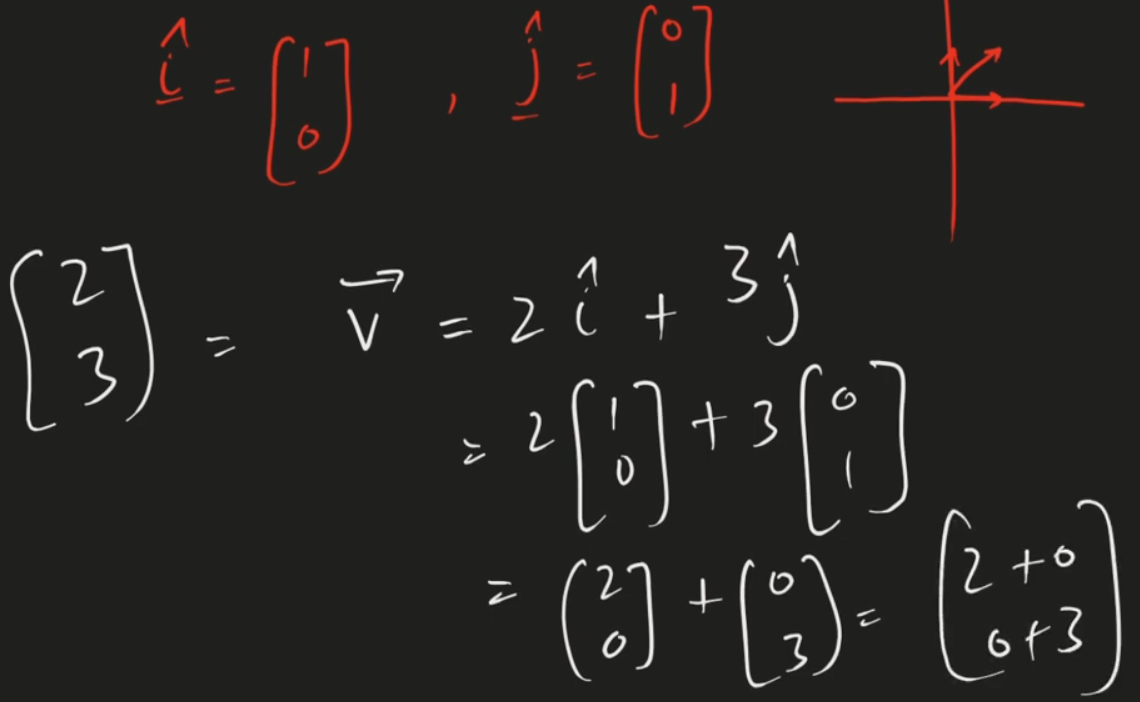 î = [1 0], ĵ = [0 1]
[2 3] = v⃗ = 2î + 3ĵ
= 2[1 0] + 3[0 1]
= [2 0] + [0 3] = [2+0 0+3]